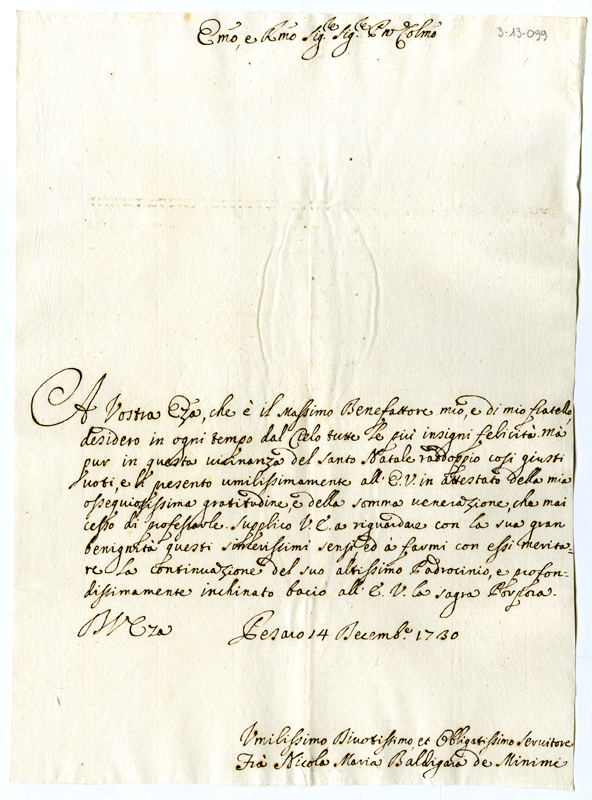 Emo, e Rmo Sig.re Sig.re P.rō Colmo
3-13-099
A Vostra Eza, che è il Massimo Benefattore mio, e di mio fratello,
desidero in ogni tempo dal Cielo tutte le più insigni felicità, mà
pur in questa vicinanza del Santo Natale raddoppio così giusti
voti, e li presento umilissimamente all' E.V. in attestato della mia
ossequiosissima gratitudine, e della somma venerazione, che mai
cesso di professarle. Supplico V.E. a riguardare con la sua gran
benignità questi sincerissimi sensi, ed à farmi con essi merita-
re la continuazione del suo altissimo Padrocinio, e profon-
dissimamente inchinato bacio all' E.V. la sagra Porpora.
D V Eza Pesaro 14 Decemb.e 1730
Umilissimo Divotissimo et Obbligatissimo Servitore
Frà Nicola Maria Baldigara de Minimi